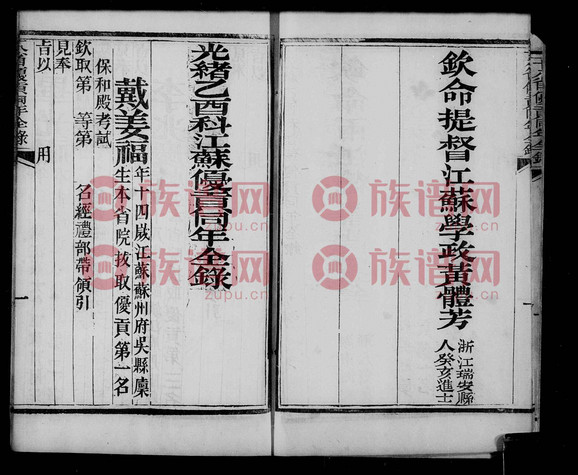 欽命提督江蘇學政黃體芳
浙江瑞安縣
人癸亥進士
光緒乙酉科江蘇優貢同年全錄
戴姜福
年十四歲江蘇蘇州府吳縣廩
生本省院拔取優貢第一名
保和殿考試
欽取第 等第 名經禮部帶領引
見奉
旨以 用
一
族谱网
zupu.cn
族谱网
zupu.cn
族谱网
zupu.cn
族谱网
zupu.cn
族谱网
zupu.cn
族谱网
zupu.cn